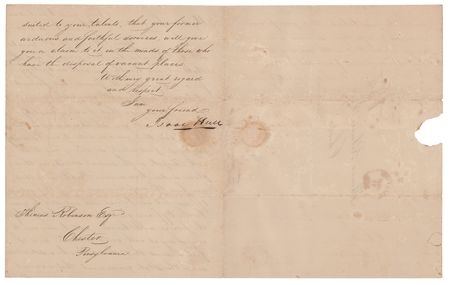 suited to your talents, that your former
arduous and faithful services, will give
you a claim to it in the minds of those who
have the disposal of vacant places.
With very great regard
and respect,
I am
your friend
Isaac Hull
Thomas Robinson Esqr
Chester
Pensylvania